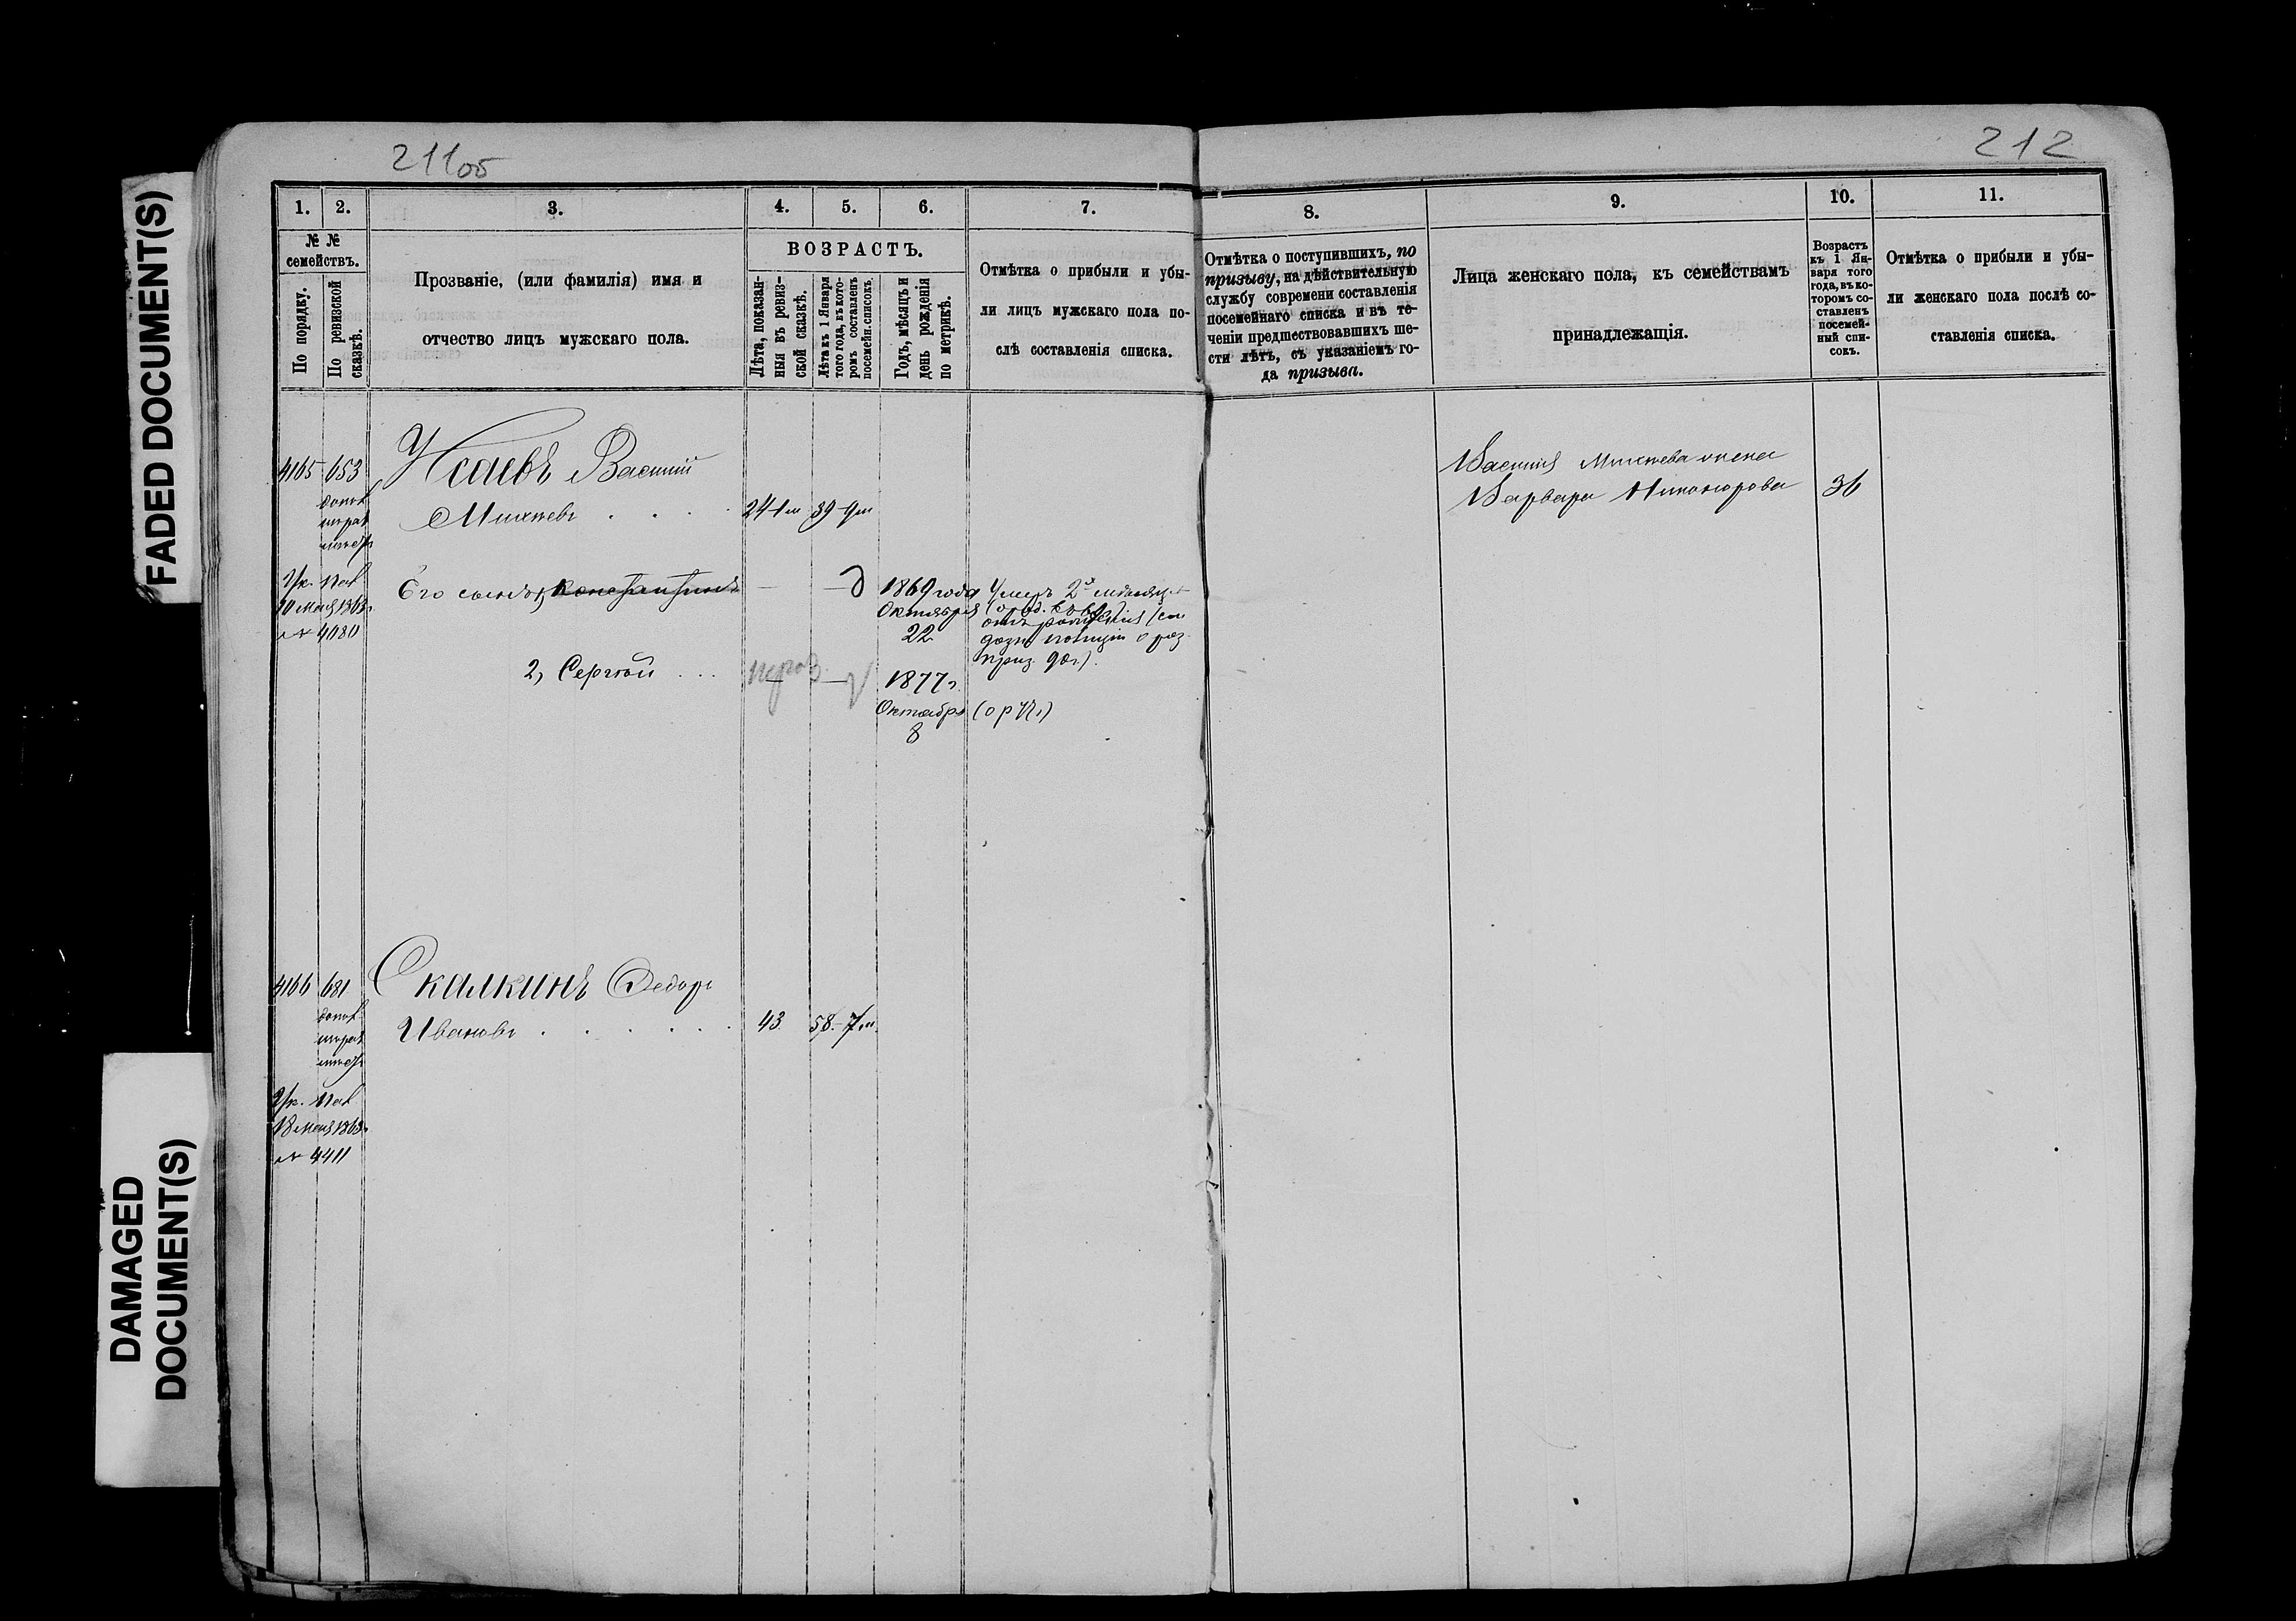 FADED DOCUMENT(S)
DAMAGED
DOCUMENT(S)
211об
212
1.
2.
3.
4.
5.
6.
7.
8.
9.
10.
11.
№ №
семействъ.
По порядку.
По ревизской
сказкѣ.
Прозваніе, (или фамилія) имя и
отчество лицъ мужскаго пола.
ВОЗРАСТЪ.
Лѣта, показан-
ныя въ ревиз-
ской сказкѣ.
Лѣта къ 1 Января
того года, въ кото-
ромъ составленъ
посемейн. списокъ
Годъ, мѣсяцъ и
день рожденія
по метрикѣ.
Отмѣтка о прибыли и убы-
ли лицъ мужскаго пола по-
слѣ составленія списка.
Отмѣтка о поступившихъ, по
призыву, на дѣйствительную
службу современи составленія
посемейнаго списка и въ те-
ченіи предшествовавшихъ ше-
сти лѣтъ, съ указаніемъ го-
да призыва.
Лица женскаго пола, къ семействамъ
принадлежащія.
Возрастъ
къ 1 Ян-
варя того
года, въ ко-
торомъ со-
ставленъ
посемей-
ный спи-
сокъ.
Отмѣтка о прибыли и убы-
ли женскаго пола послѣ со-
ставленія списка.
4165 653 Исаевъ Василий
Михѣевъ 24-1м 39-9м
Василия Михѣева жена
Варвара Никанорова 36
Ук. Пал
10 мая 1863г
№ 4080
Его сынъ 1, Константинъ
1869 года
Октября
22
Умеръ 2х
2, Сергѣй
1877г.
Октября
8
4166 681 Скалкинъ Федоръ
Ивановъ 43 58-7м
Ук. Пал
18 мая 1863г
№ 4411